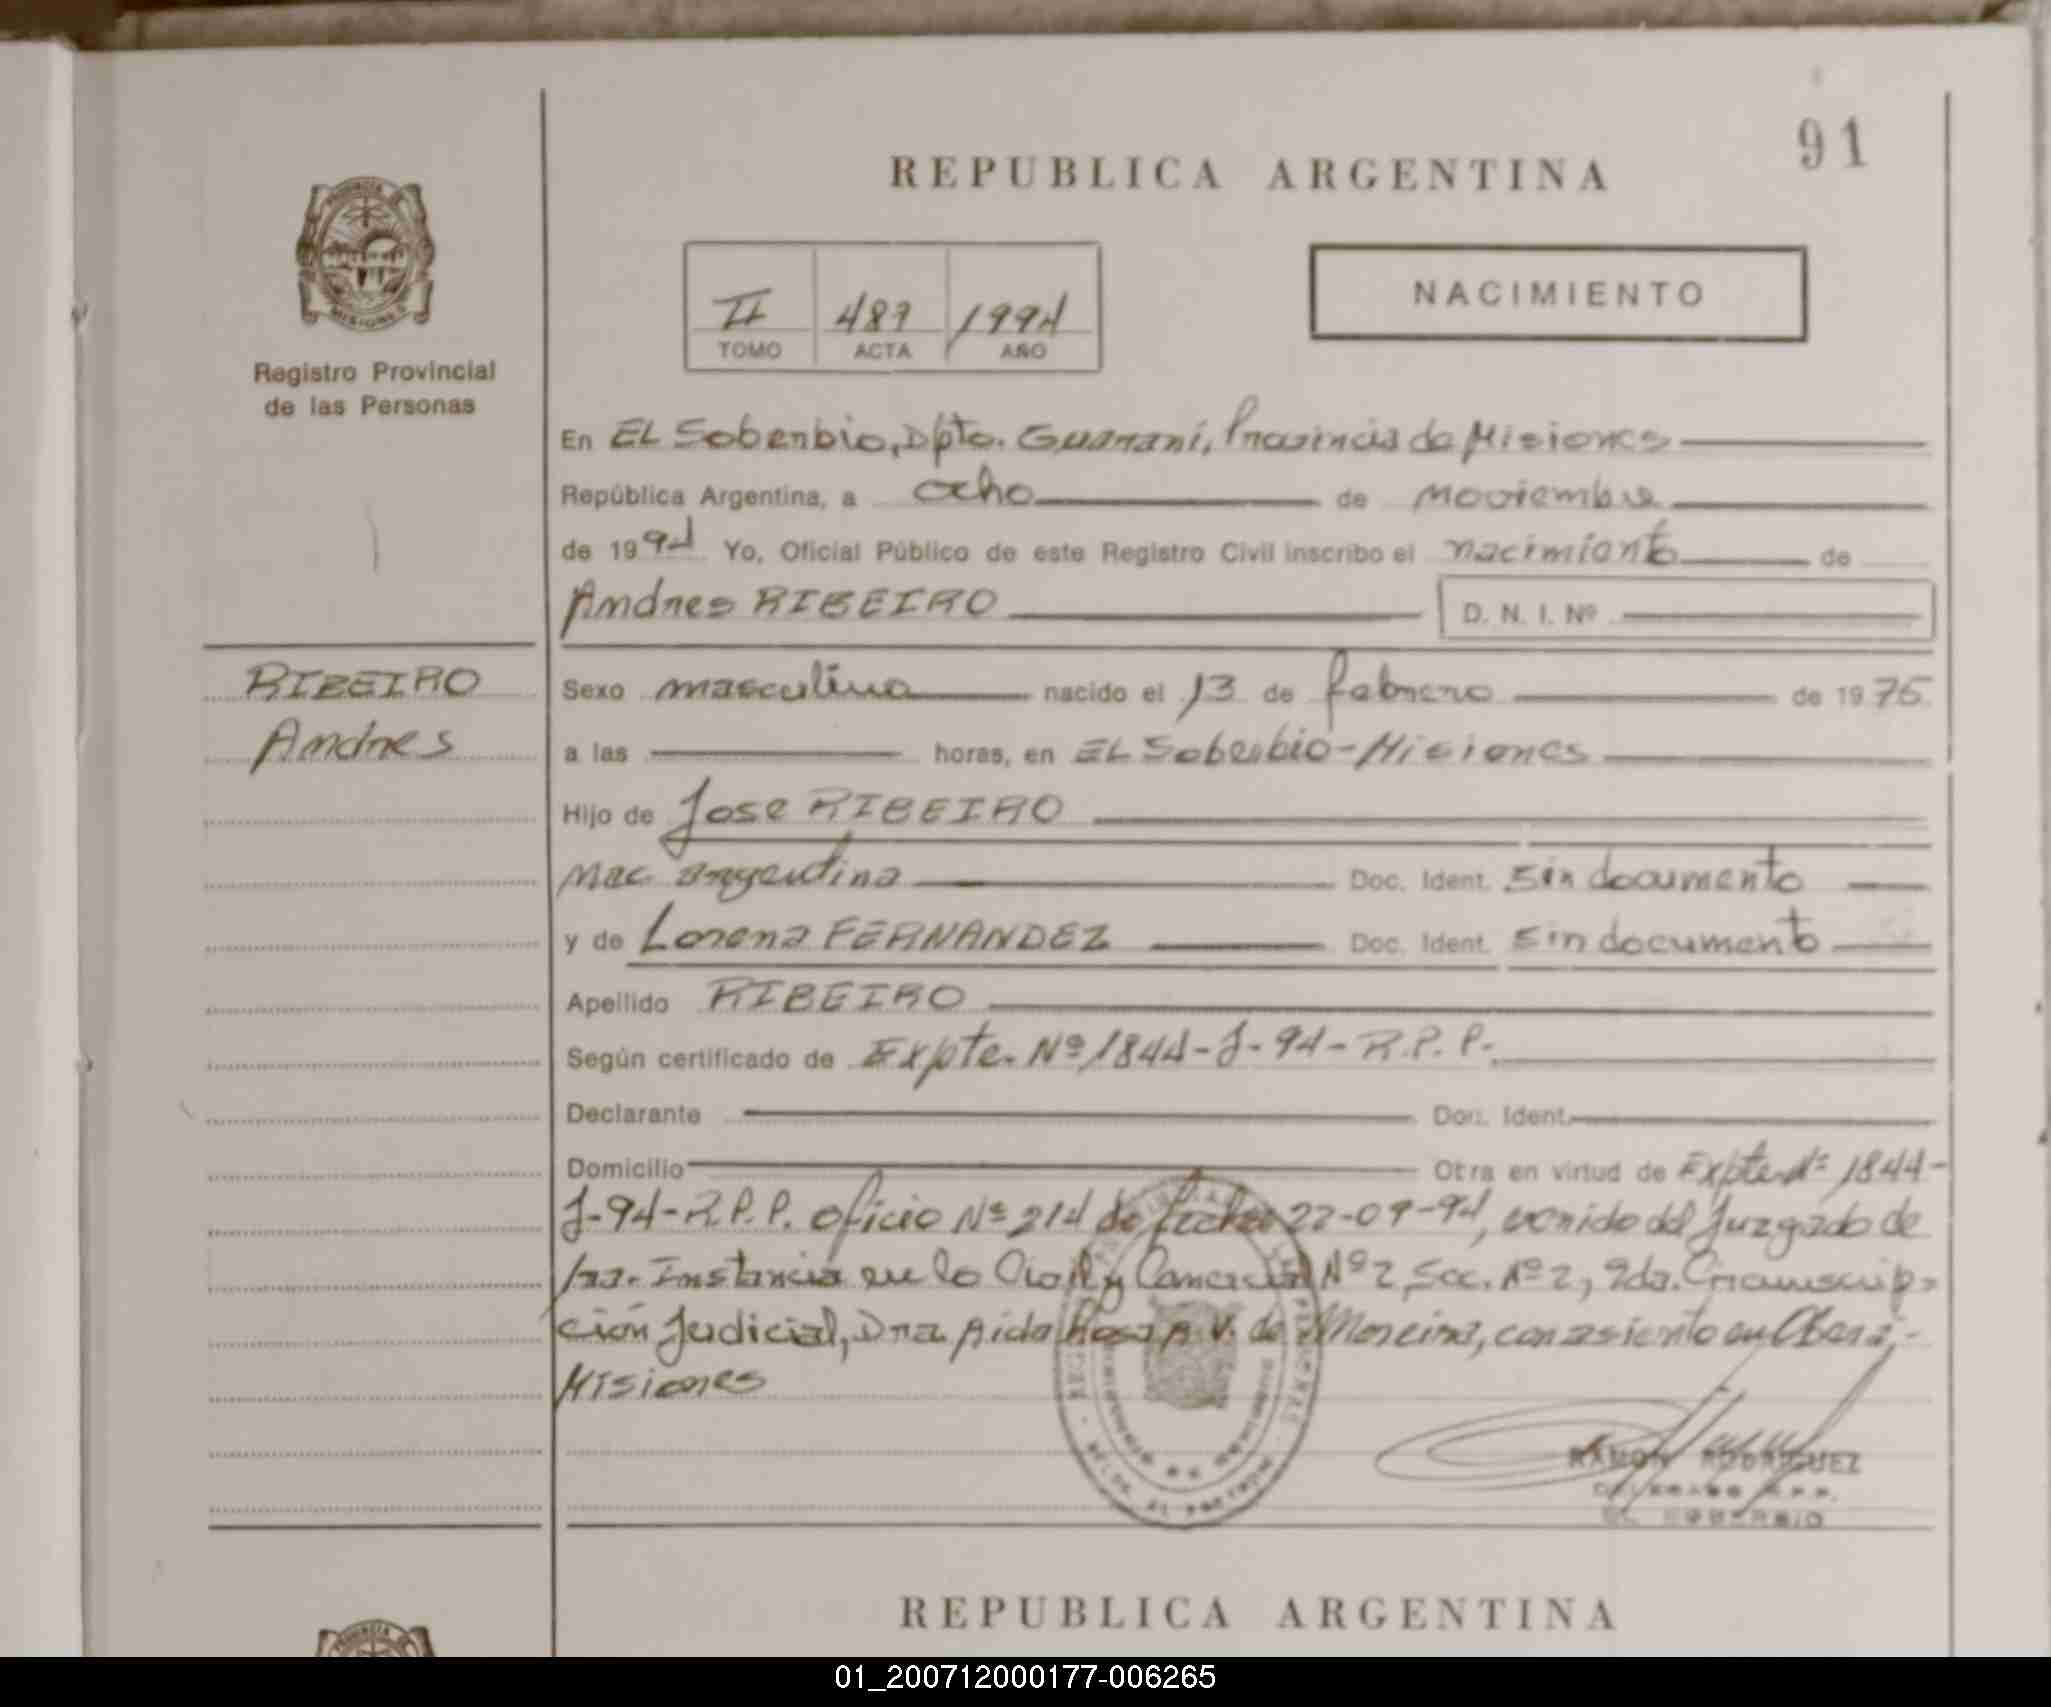 91
REPUBLICA ARGENTINA
NACIMIENTO
II 487 1994
TOMO ACTA AÑO
Registro Provincial
de las Personas
En EL Soberbio, Dpto. Guaraní, Provincia de Misiones
República Argentina, a ocho de noviembre
de 1994 Yo, Oficial Público de este Registro Civil inscribo el nacimiento de
Andres RIBEIRO D. N. I. Nº
RIBEIRO
Andres
Sexo masculino nacido el 13 de febrero de 1975
a las horas, en EL Soberbio-Misiones
Hijo de Jose RIBEIRO
Nac. argentina Doc. Ident. sin documento
y de Lorena FERNANDEZ Doc. Ident. sin documento
Apellido RIBEIRO
Según certificado de Expte. Nº 1844-J-94-R.P.P.
Declarante Doc. Ident.
Domicilio Otra en virtud de Expte Nº 1844-
J-94-R.P.P. oficio Nº 214 de fecha 22-09-94, venido del Juzgado de
1ra. Instancia en lo Civil y Comercial Nº 2, Sec. Nº 2, 2da. Circunscrip=
ción Judicial, Dra Aida Rosa A. V. de Moreira, con asiento en Oberá,-
Misiones
RAMON RODRIGUEZ
DELEGADO R.P.P.
EL SOBERBIO
REPUBLICA ARGENTINA
01_200712000177-006265